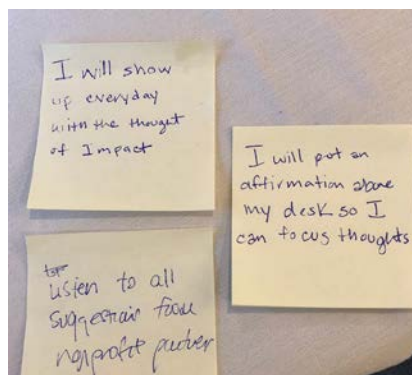 I will show
up everyday
with the thought
of Impact
I will put an
affirmation above
my desk so I
can focus thoughts
Listen to all
suggestions from
nonprofit partner